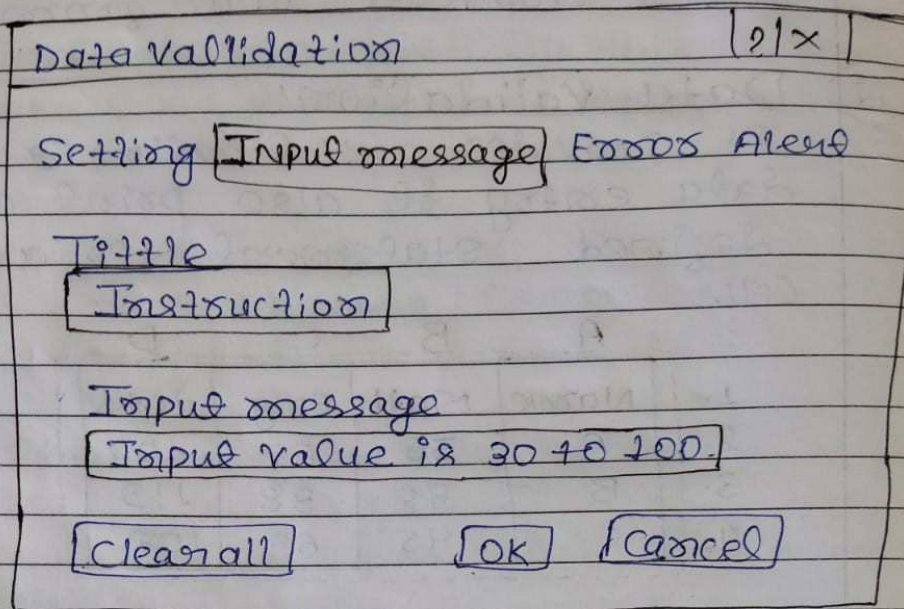 Data Vallidation ? X
Setting Input message Error Alert
Tittle
Instruction
Input message
Input value is 30 to 100.
Clear all OK Cancel